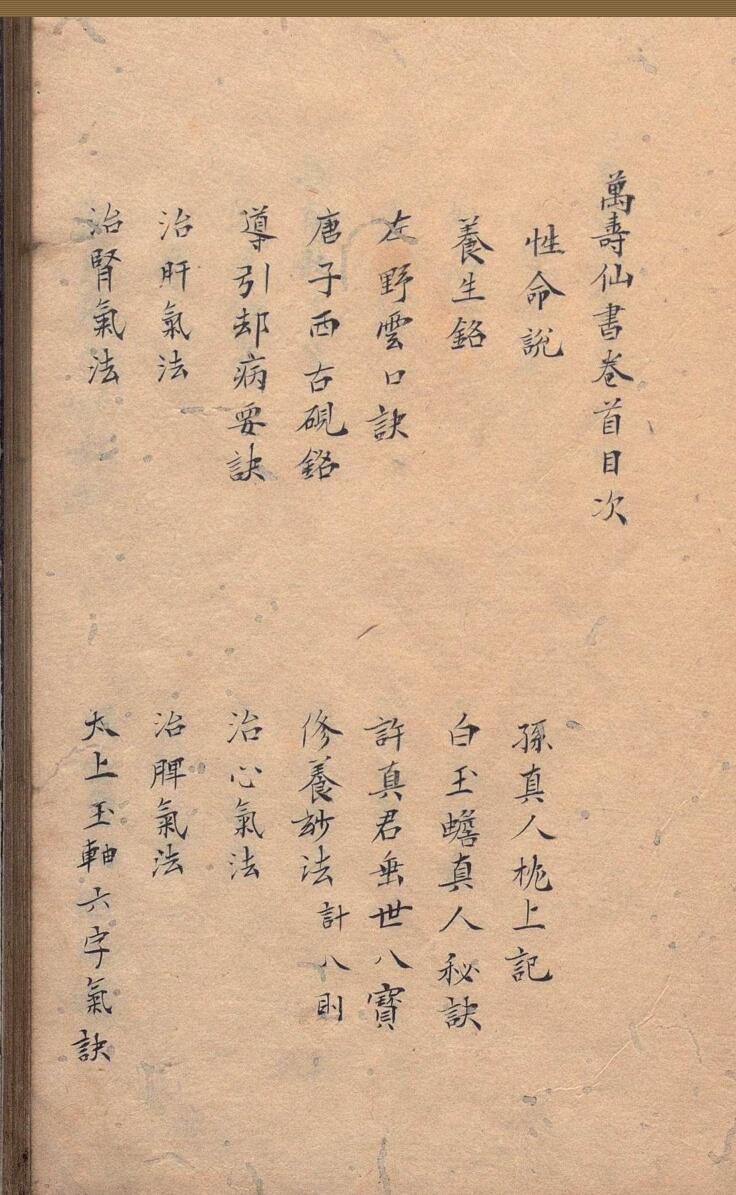 萬壽仙書卷首目次
性命說
孫真人枕上記
養生銘
白玉蟾真人秘訣
左野雲口訣
許真君垂世八寶
唐子西古硯銘
修養玅法計八則
導引却病要訣
治心氣法
治肝氣法
治脾氣法
治腎氣法
太上玉軸六字氣訣